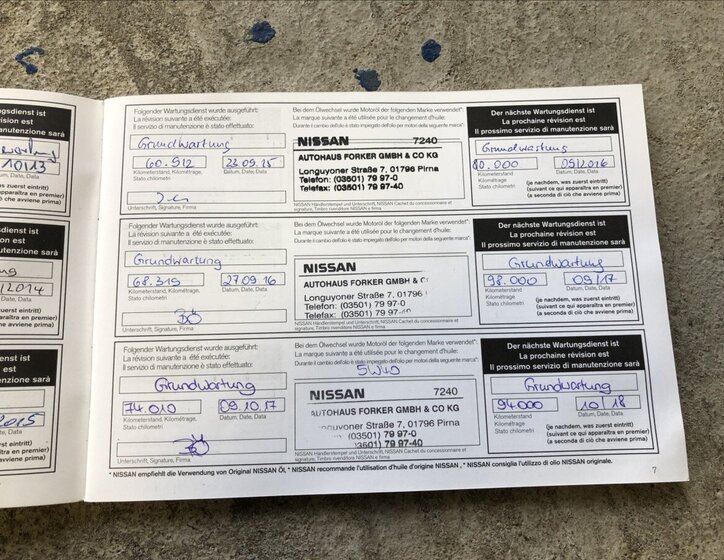 ungsdienst ist
évision est
nutenzione sarà
10113
Datum, Date, Data
was zuerst eintritt)
apparaîtra en premier)
che avviene prima)
Folgender Wartungsdienst wurde ausgeführt:
La révision suivante a été exécutée:
Il servizio di manutenzione è stato effettuato:
Grundwartung
60.912
23.09.15
Kilometerstand, Kilométrage,
Stato chilometri
Datum, Date, Data
Unterschrift, Signature, Firma
Bei dem Ölwechsel wurde Motoröl der folgenden Marke verwendet*
La marque suivante a été utilisée pour le changement d'huile:
Durante il cambio dell'olio è stato impiegato dell'olio per motori della seguente marca*:
NISSAN 7240
AUTOHAUS FORKER GMBH & CO KG
Longuyoner Straße 7, 01796 Pirna
Telefon: (03501) 79 97-0
Telefax: (03501) 79 97-40
NISSAN Händlerstempel und Unterschrift, NISSAN Cachet du concessionnaire et
signature, Timbro rivenditore NISSAN e firma
Der nächste Wartungsdienst ist
La prochaine révision est
Il prossimo servizio di manutenzione sarà
Grundwartung
80.000
09/2016
Kilometerstand
Kilométrage
Stato chilometri
Datum, Date, Data
(je nachdem, was zuerst eintritt)
(suivant ce qui apparaîtra en premier)
(a seconda di ciò che avviene prima)
Folgender Wartungsdienst wurde ausgeführt:
La révision suivante a été exécutée:
Il servizio di manutenzione è stato effettuato:
Grundwartung
68.319
27.09.16
Kilometerstand, Kilométrage,
Stato chilometri
Datum, Date, Data
Unterschrift, Signature, Firma
Bei dem Ölwechsel wurde Motoröl der folgenden Marke verwendet*
La marque suivante a été utilisée pour le changement d'huile:
Durante il cambio dell'olio è stato impiegato dell'olio per motori della seguente marca*:
NISSAN
AUTOHAUS FORKER GMBH &
Longuyoner Straße 7, 01796
Telefon: (03501) 79 97-0
Telefax: (03501) 79 97-40
NISSAN Händlerstempel und Unterschrift, NISSAN Cachet du concessionnaire et
signature, Timbro rivenditore NISSAN e firma
Der nächste Wartungsdienst ist
La prochaine révision est
Il prossimo servizio di manutenzione sarà
Grundwartung
98.000
09/17
Kilometerstand
Kilométrage
Stato chilometri
Datum, Date, Data
(je nachdem, was zuerst eintritt)
(suivant ce qui apparaîtra en premier)
(a seconda di ciò che avviene prima)
Folgender Wartungsdienst wurde ausgeführt:
La révision suivante a été exécutée:
Il servizio di manutenzione è stato effettuato:
Grundwartung
74.010
09.10.17
Kilometerstand, Kilométrage,
Stato chilometri
Datum, Date, Data
Unterschrift, Signature, Firma
Bei dem Ölwechsel wurde Motoröl der folgenden Marke verwendet*
La marque suivante a été utilisée pour le changement d'huile:
Durante il cambio dell'olio è stato impiegato dell'olio per motori della seguente marca*:
5W40
NISSAN 7240
AUTOHAUS FORKER GMBH & CO KG
Straße 7, 01796 Pirna
(03501) 79 97-0
79 97-40
NISSAN Händlerstempel und Unterschrift, NISSAN Cachet du concessionnaire et
signature, Timbro rivenditore NISSAN e firma
Der nächste Wartungsdienst ist
La prochaine révision est
Il prossimo servizio di manutenzione sarà
Grundwartung
94000
10/18
Kilometerstand
Kilométrage
Stato chilometri
Datum, Date, Data
(je nachdem, was zuerst eintritt)
(suivant ce qui apparaîtra en premier)
(a seconda di ciò che avviene prima)
* NISSAN empfiehlt die Verwendung von Original NISSAN Öl, * NISSAN recommande l'utilisation d'huile d'origine NISSAN, * NISSAN consiglia l'utilizzo di olio NISSAN originale.
7